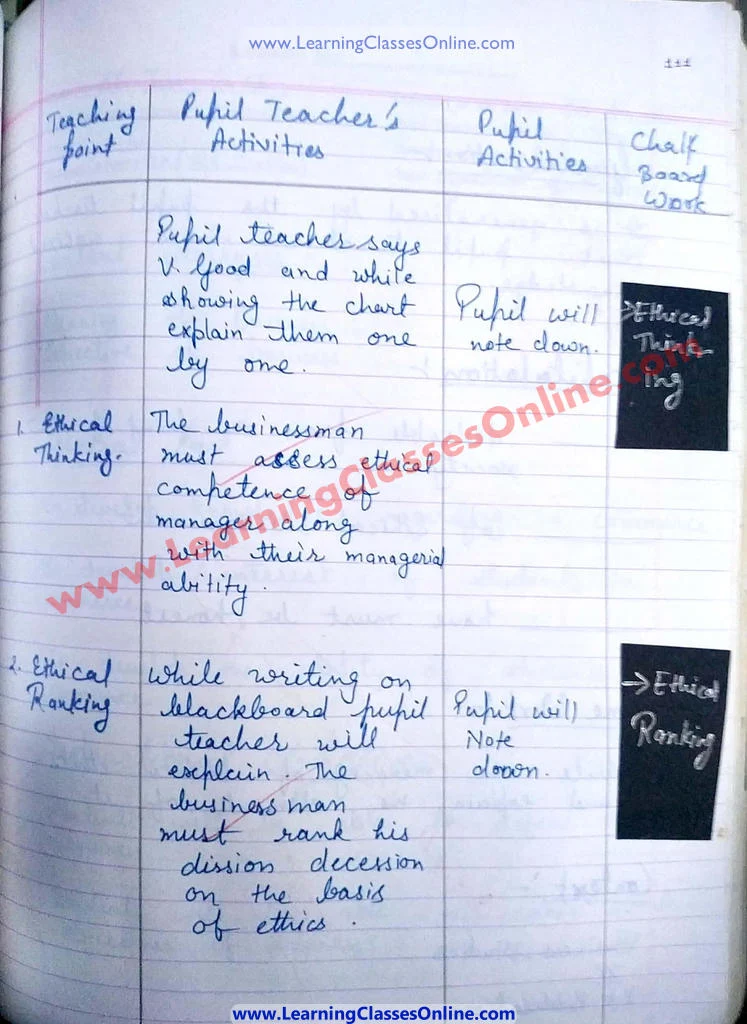 www.LearningClassesOnline.com
111
Teaching
point
Pupil Teacher's
Activities
Pupil
Activities
Chalk
Board
Work
Pupil teacher says
V. Good and while
showing the chart
explain them one
by one.
Pupil will
note down.
→Ethical
Think-
ing
1. Ethical
Thinking.
The businessman
must assess ethical
competence of
manager along
with their managerial
abitity.
www.LearningClassesOnline.com
2. Ethical
Ranking
While writing on
blackboard pupil
teacher will
explain. The
business man
must rank his
dission decession
on the basis
of ethics.
Pupil will
Note
down.
→ Ethical
Ranking
www.LearningClassesOnline.com